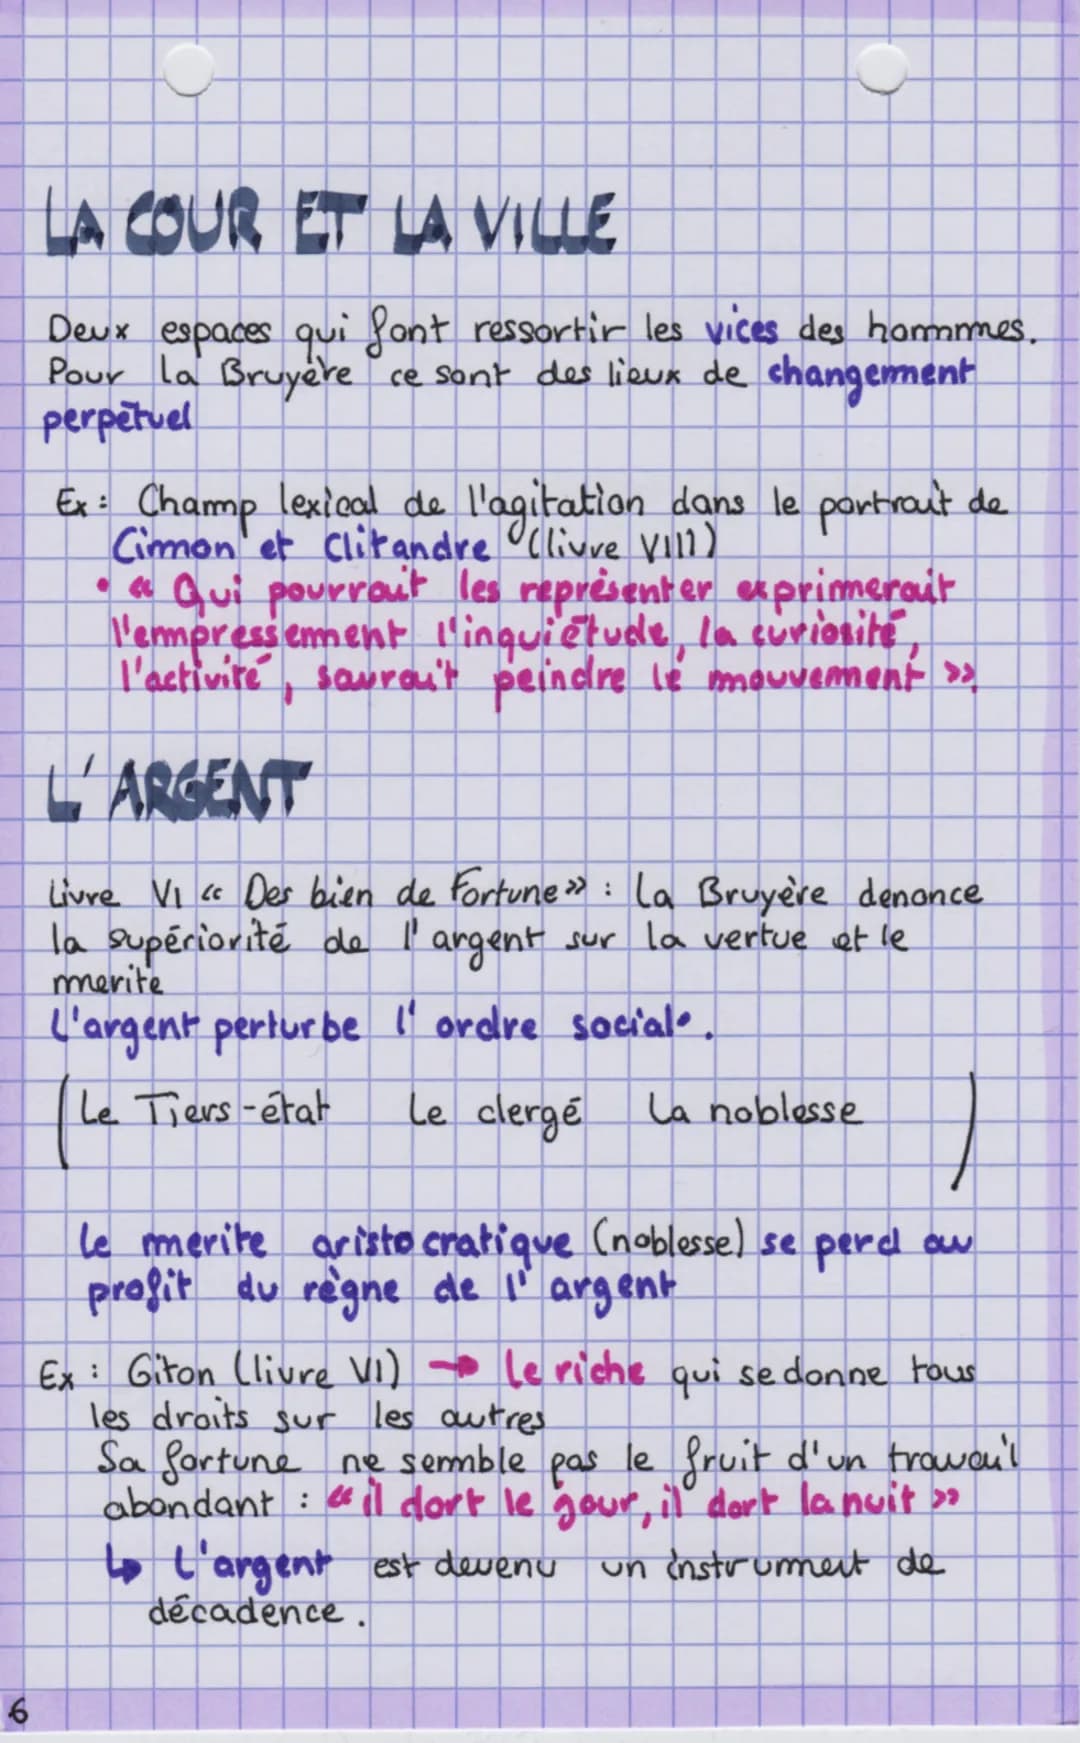 LA COUR ET LA VILLE
Deux espaces qui font ressortir les vices des hommes.
Pour la Bruyère ce sont des lieux de changement
perpétuel
Ex : Champ lexical de l'agitation dans le portrait de
Cimon et Clitandre (livre VIII)
• « Qui pourrait les représenter exprimerait
l'empressement l'inquiétude, la curiosité,
l'activité, saurait peindre le mouvement ».
L'ARGENT
Livre VI « Des bien de Fortune » : La Bruyère denonce
la supériorité de l'argent sur la vertue et le
merite
L'argent perturbe l'ordre social.
(Le Tiers-état Le clergé La noblesse )
Le merite aristocratique (noblesse) se perd au
profit du règne de l'argent
Ex : Giton (livre VI) → Le riche qui se donne tous
les droits sur les autres
Sa fortune ne semble pas le fruit d'un travail
abondant : « il dort le jour, il dort la nuit »
↳ L'argent est devenu un instrument de
décadence.
6